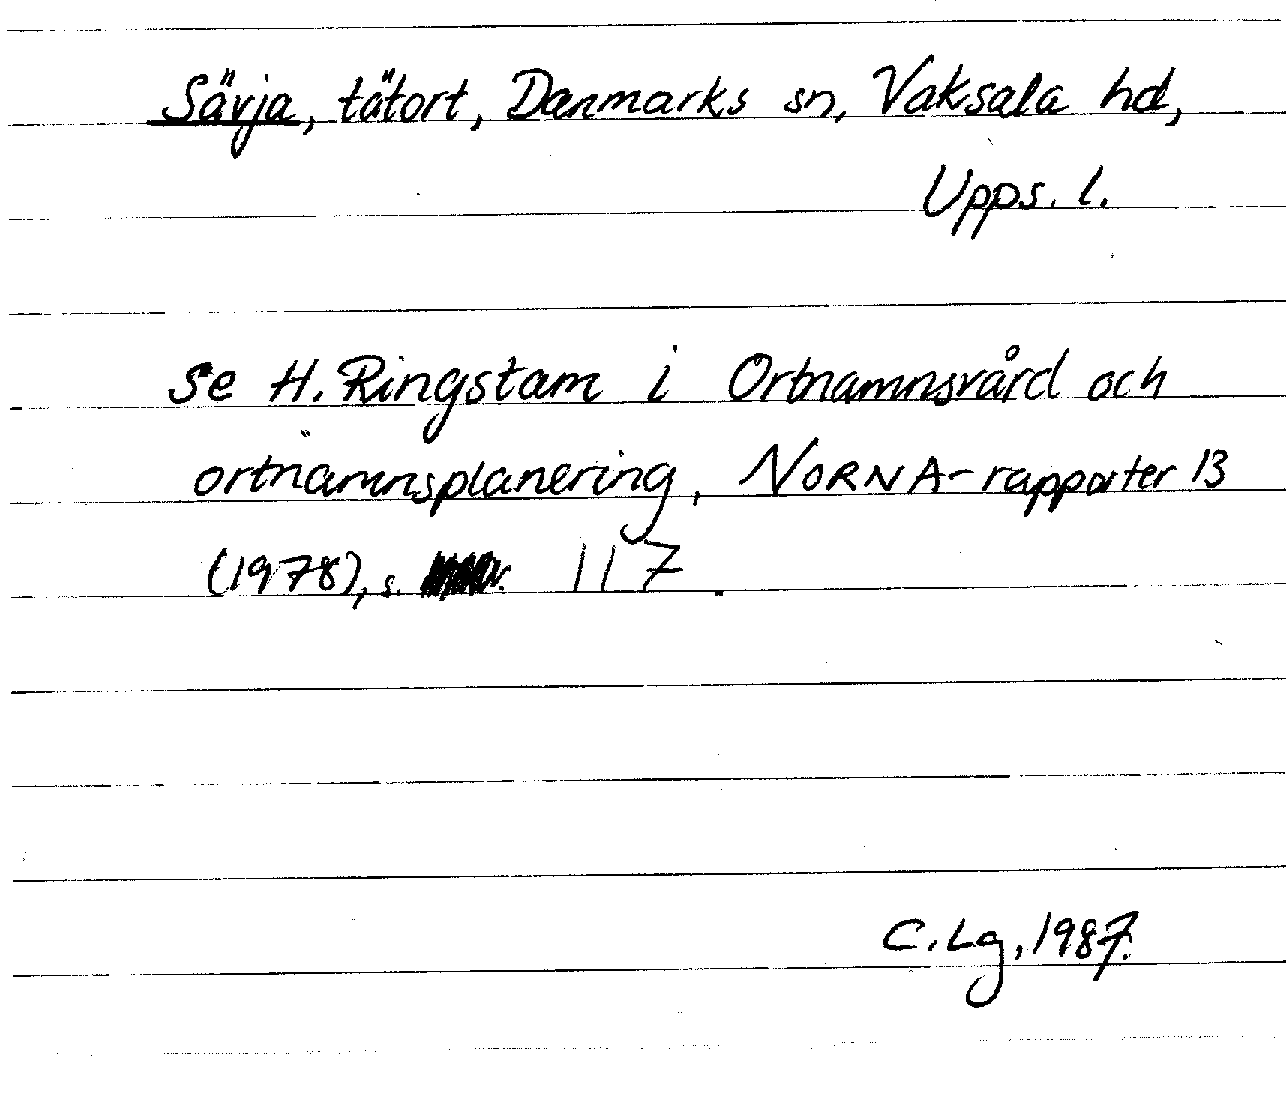 Sävja, tätort, Danmarks sn, Vaksala hd,
Upps. l.
Se H. Ringstam i Ortnamnsvård och
ortnamnsplanering, NORNA-rapporter 13
(1978), s. 117.
C. Lg, 1987.